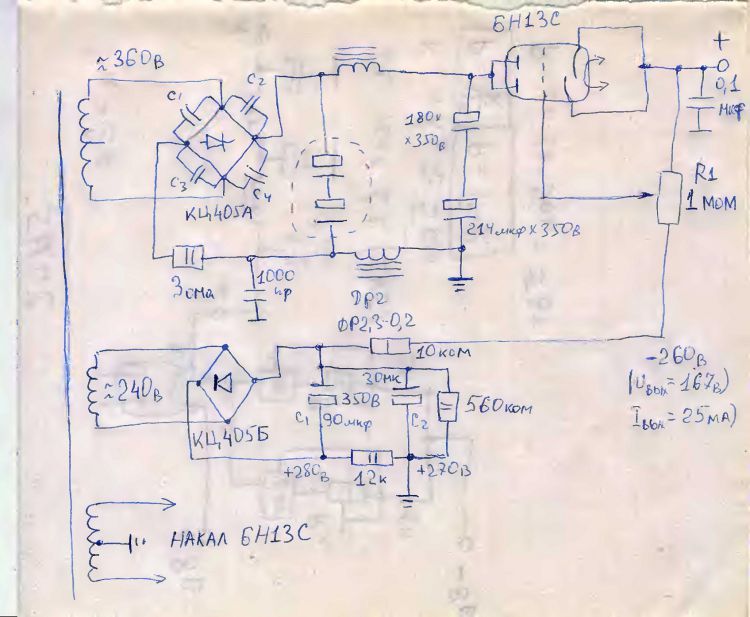 6Н13С
≈360в
+
C1
C2
0,1
мкф
180х
х350в
C3
C4
R1
1 мом
КЦ405А
214мкф х 350в
3 ома
1000
пф
ДР2
ФР2,3-0,2
10ком
-260в
≈240в
30мк
(Uвых = 167в)
350В
560ком
Iвых = 25мА)
C1
90мкф
C2
КЦ405Б
+280в
12к
+270в
НАКАЛ 6Н13С